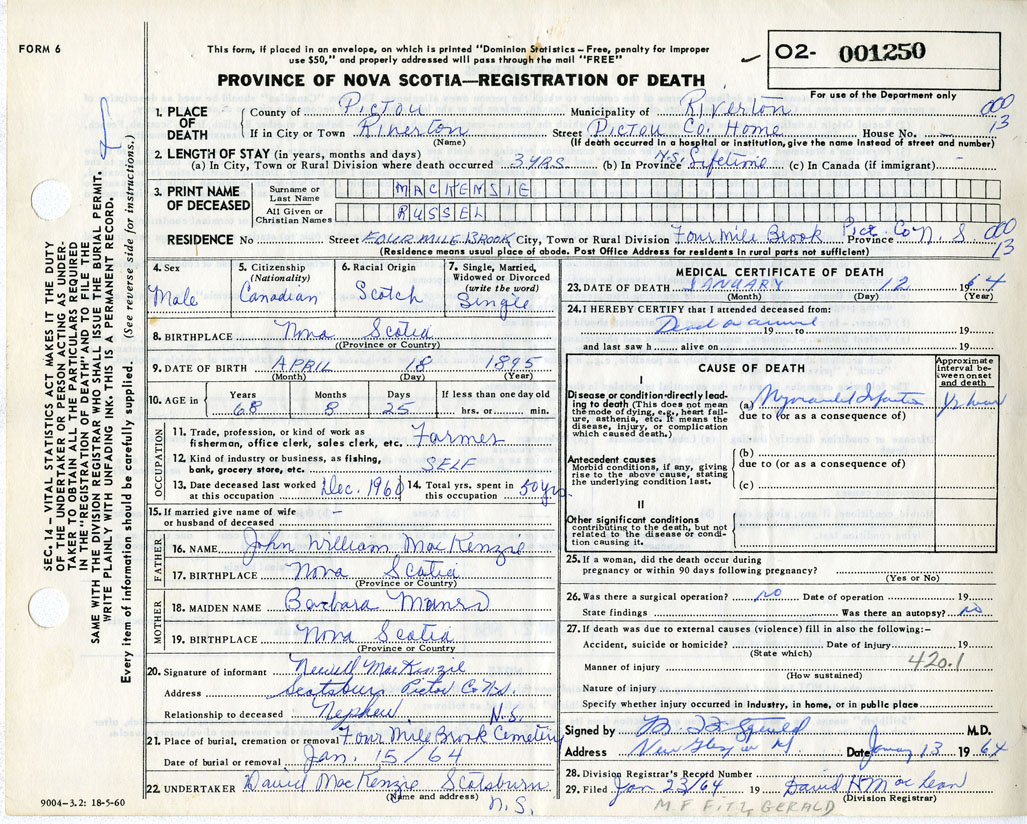 FORM 6
This form, if placed in an envelope, on which is printed "Dominion Statistics – Free, penalty for improper
use $50," and properly addressed will pass through the mail "FREE"
02- 001250
For use of the Department only
PROVINCE OF NOVA SCOTIA—REGISTRATION OF DEATH
1. PLACE OF DEATH
County of Pictou Municipality of Riverton 000
If in City or Town Riverton (Name) Street Pictou Co. Home House No. — 13
(If death occurred in a hospital or institution, give the name instead of street and number)
2. LENGTH OF STAY (in years, months and days)
(a) In City, Town or Rural Division where death occurred 3 YRS (b) In Province N.S. Lifetime (c) In Canada (if immigrant) –
3. PRINT NAME OF DECEASED
Surname or Last Name MACKENSIE
All Given or Christian Names RUSSEL
RESIDENCE No Street FOUR MILE BROOK City, Town or Rural Division Four Mile Brook Pict. Co Province N.S. 000
13
(Residence means usual place of abode. Post Office Address for residents in rural parts not sufficient)
4. Sex Male
5. Citizenship (Nationality) Canadian
6. Racial Origin Scotch
7. Single, Married, Widowed or Divorced (write the word) Single
8. BIRTHPLACE Nova Scotia
(Province or Country)
9. DATE OF BIRTH APRIL 18 1895
(Month) (Day) (Year)
10. AGE in Years 68 Months 8 Days 25 If less than one day old hrs. or min.
OCCUPATION
11. Trade, profession, or kind of work as fisherman, office clerk, sales clerk, etc. Farmer
12. Kind of industry or business, as fishing, bank, grocery store, etc. SELF
13. Date deceased last worked at this occupation Dec. 1960
14. Total yrs. spent in this occupation 50 yrs.
15. If married give name of wife or husband of deceased –
FATHER
16. NAME John William MacKenzie
17. BIRTHPLACE Nova Scotia
(Province or Country)
MOTHER
18. MAIDEN NAME Barbara
19. BIRTHPLACE Nova Scotia
(Province or Country)
20. Signature of informant Newell MacKinzie
Address Scotsburn Pictou Co N.S.
Relationship to deceased Nephew N.S.
21. Place of burial, cremation or removal Four Mile Brook Cemetery
Date of burial or removal Jan. 15/64
22. UNDERTAKER David MacKenzie Scotsburn
(Name and address) N.S.
9004-3.2: 18-5-60
MEDICAL CERTIFICATE OF DEATH
23. DATE OF DEATH JANUARY 12 1964
(Month) (Day) (Year)
24. I HEREBY CERTIFY that I attended deceased from:
Dead on arrival 19 to 19
and last saw h alive on 19
CAUSE OF DEATH
Approximate interval between onset and death
I
Disease or condition directly leading to death (This does not mean the mode of dying, e.g., heart failure, asthenia, etc. It means the disease, injury, or complication which caused death.)
(a) Myocardial Infarction ½ hour
due to (or as a consequence of)
Antecedent causes
Morbid conditions, if any, giving rise to the above cause, stating the underlying condition last.
(b)
due to (or as a consequence of)
(c)
II
Other significant conditions contributing to the death, but not related to the disease or condition causing it.
25. If a woman, did the death occur during pregnancy or within 90 days following pregnancy?
(Yes or No)
26. Was there a surgical operation? no Date of operation 19
State findings Was there an autopsy? no
27. If death was due to external causes (violence) fill in also the following:–
Accident, suicide or homicide? Date of injury 19
(State which) 420.1
Manner of injury
(How sustained)
Nature of injury
Specify whether injury occurred in industry, in home, or in public place
Signed by M.D.
Address New Glasgow Date Jany 13 1964
28. Division Registrar's Record Number
29. Filed Jan 23/64 19 David H MacLean
(Division Registrar)
M. F FITZGERALD
SEC. 14 – VITAL STATISTICS ACT MAKES IT THE DUTY
OF THE UNDERTAKER OR PERSON ACTING AS UNDER-
TAKER TO OBTAIN ALL THE PARTICULARS REQUIRED
IN THE "REGISTRATION OF DEATH" AND TO FILE THE
SAME WITH THE DIVISION REGISTRAR WHO SHALL ISSUE THE BURIAL PERMIT.
WRITE PLAINLY WITH UNFADING INK. THIS IS A PERMANENT RECORD.
Every item of information should be carefully supplied. (See reverse side for instructions.)